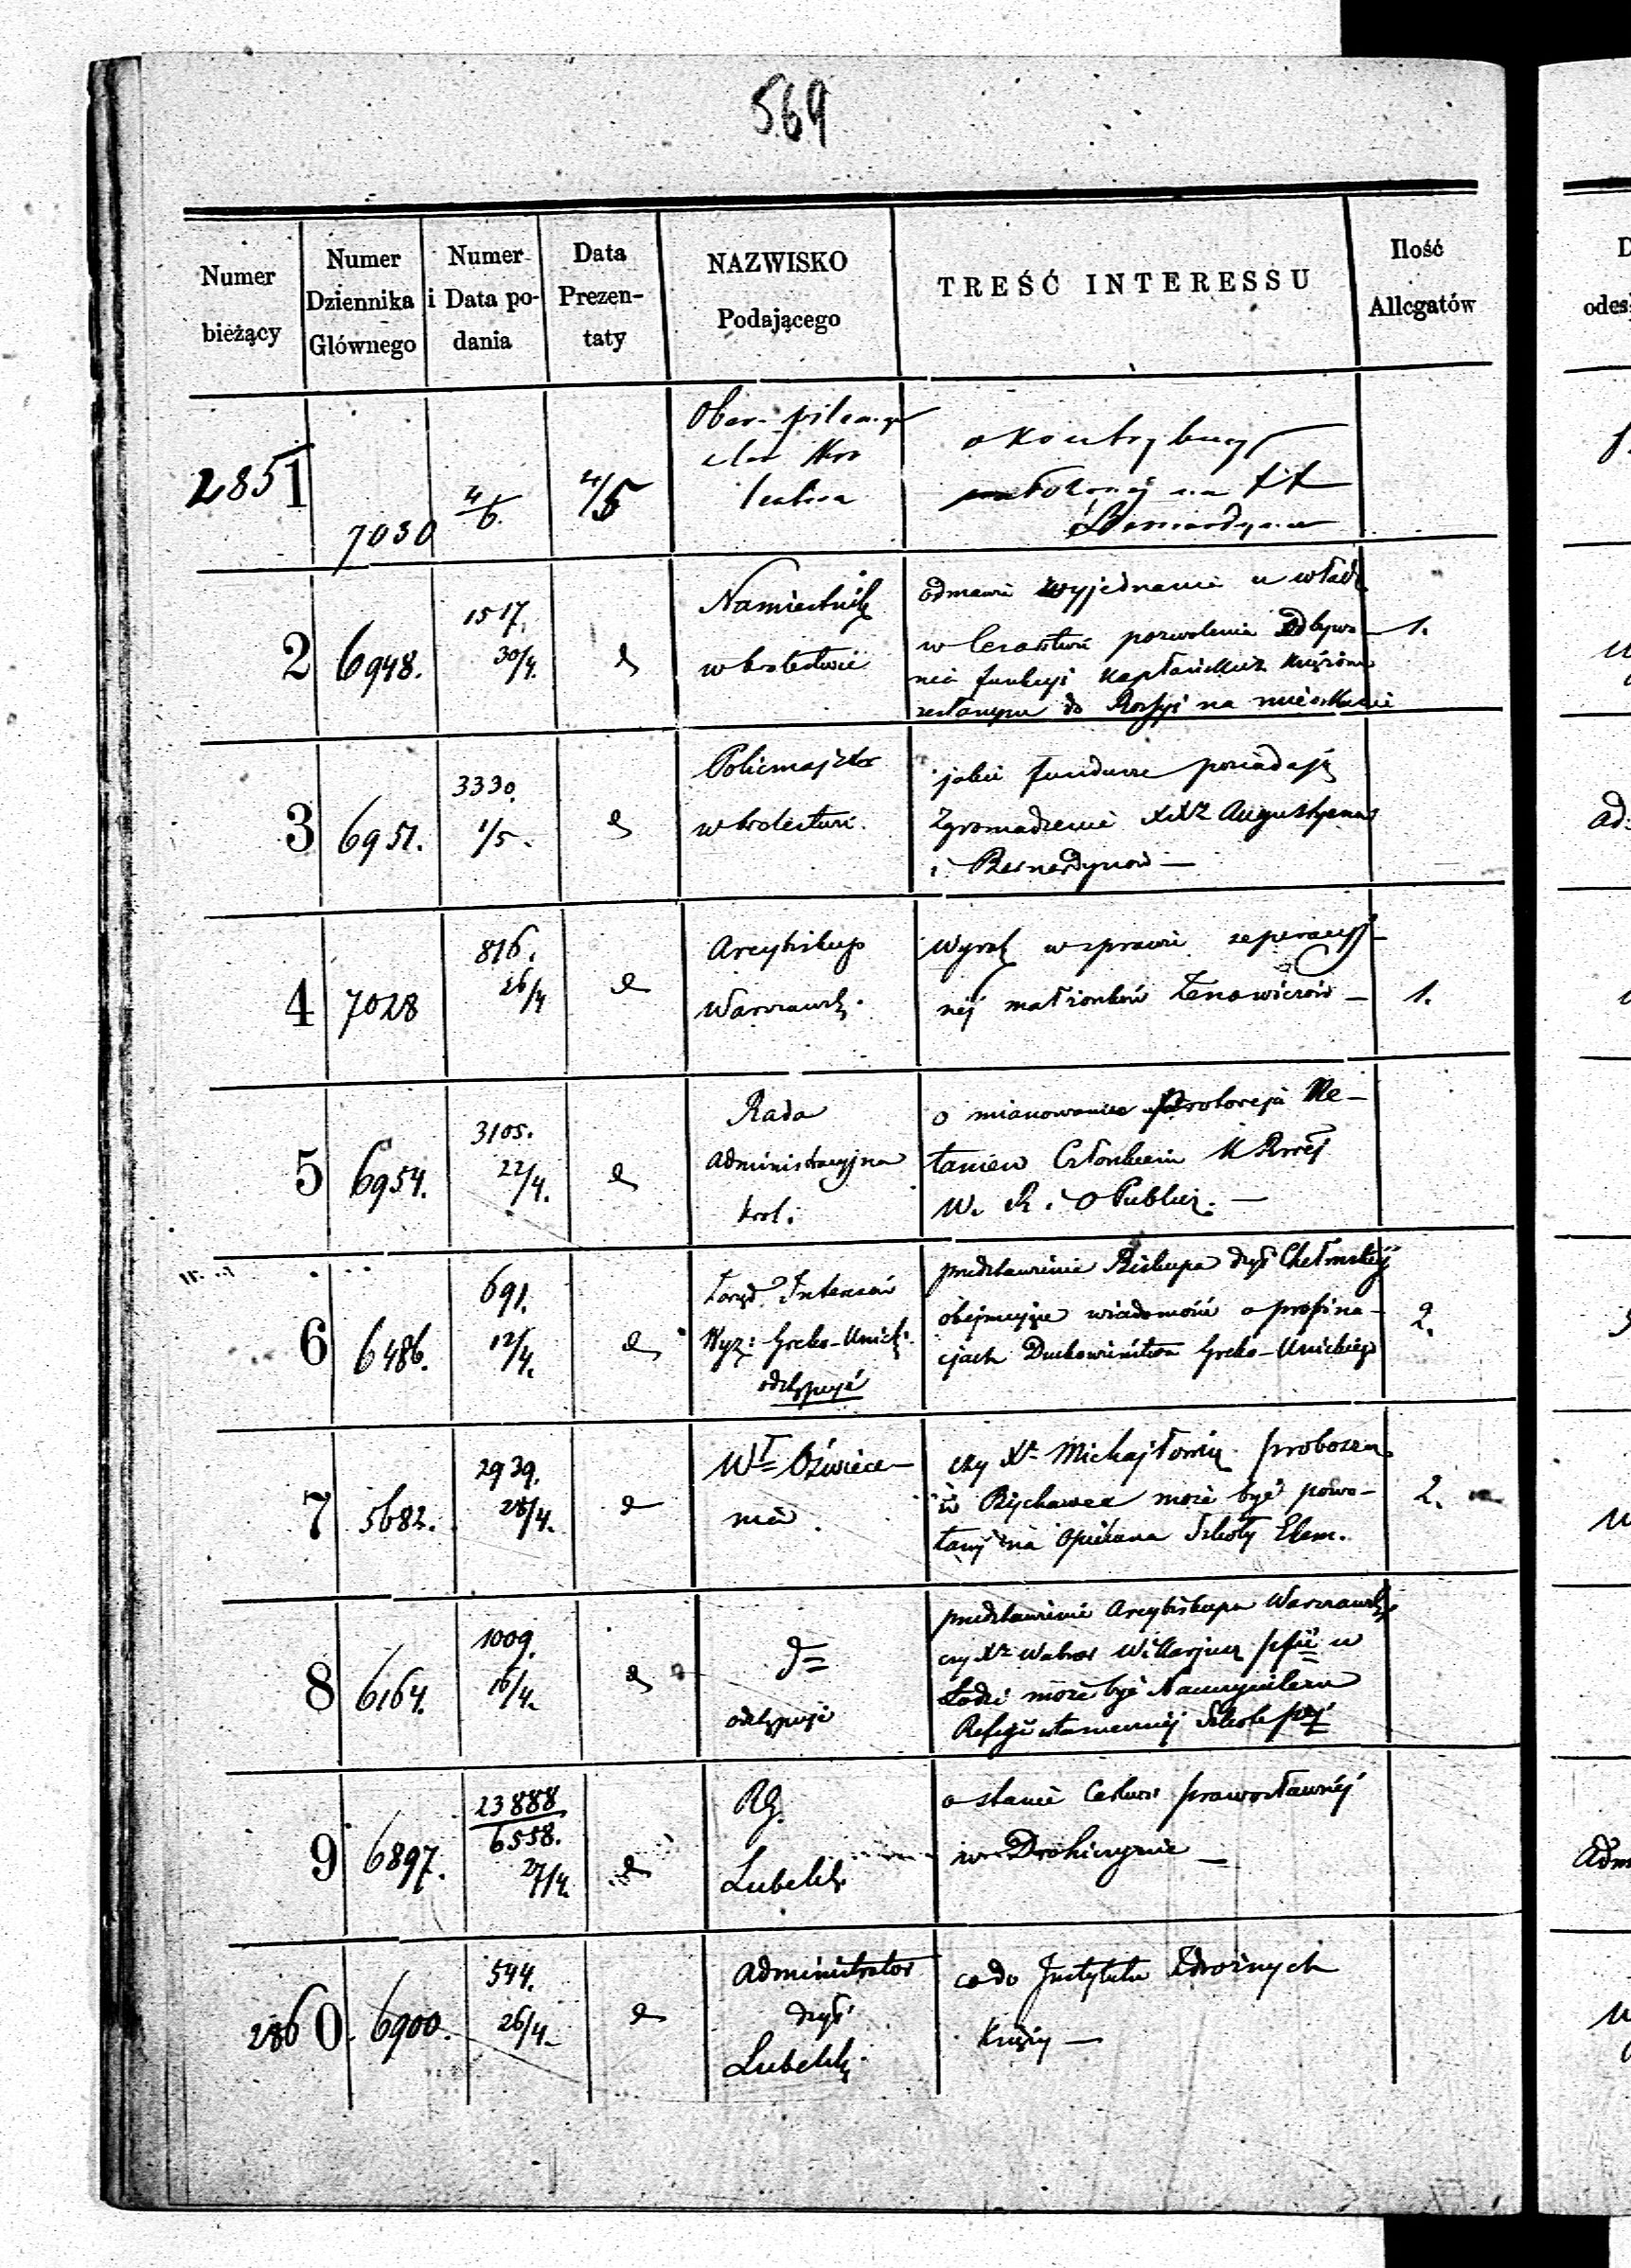 569
Numer bieżący
Numer Dziennika Głównego
Numer i Data podania
Data Prezentaty
NAZWISKO Podającego
TREŚĆ INTERESSU
Ilość Allegatów
2851
7030
4/5.
4/5
Ober-
o kontrybucyi
na
Bernardynów
2
6948.
1517.
30/4.
d
Namiestnik
w Królestwie
odmawia wyjednania u władz
w Cesarstwie pozwolenia odbywa-
nia funkcyi Kapłańskich Księżom
zesłanym do Rossyi na mieszkanie
1.
3
6951.
3330.
1/5.
d
Policmajster
w Królestwie.
jakie fundusze posiadają
Zgromadzenie XX Augustyanów
i Bernardynów —
4
7028
816.
26/4
d
Arcybiskup
Warszawsk.
Wyrok w sprawie separacyj-
nej małżonków Zenowiczów —
1.
5
6954.
3105.
22/4.
d
Rada
Administracyjna
Król.
o mianowaniu Protoreja Me-
taniew Członkiem K Rząd
W. R. i O Publicz. —
6
6486.
691.
12/4.
d
Zarząd Interessów
Wyz: Greko-Unick.
odstępuje
przedstawienie Biskupa dyec Chełmskiej
obejmujące wiadomość o propina-
cjach Duchowieństwa Greko-Unickiego
2.
7
5682.
2939.
28/4.
d
Wł Oświece-
nia.
czy X. Michajłowicz proboszcz
w Bychawce może być powo-
łany na Opiekuna Szkoły Elem.
2.
8
6164.
1009.
16/4.
d
d=
odstępuje
przedstawienie Arcybiskupa Warszawsk.
czy X. Wikarjusz w
Łodzi może być Nauczycielem
Religii w tamecznej Szkole
9
6897.
23888
6558.
27/4.
d
RG.
Lubelsk.
o stanie Cerkwi prawosławnej
w Drohiczynie —
2860.
6900.
544.
26/4.
d
Administrator
dyec
Lubelsk.
co do Instytutu Zdrożnych
Księży —